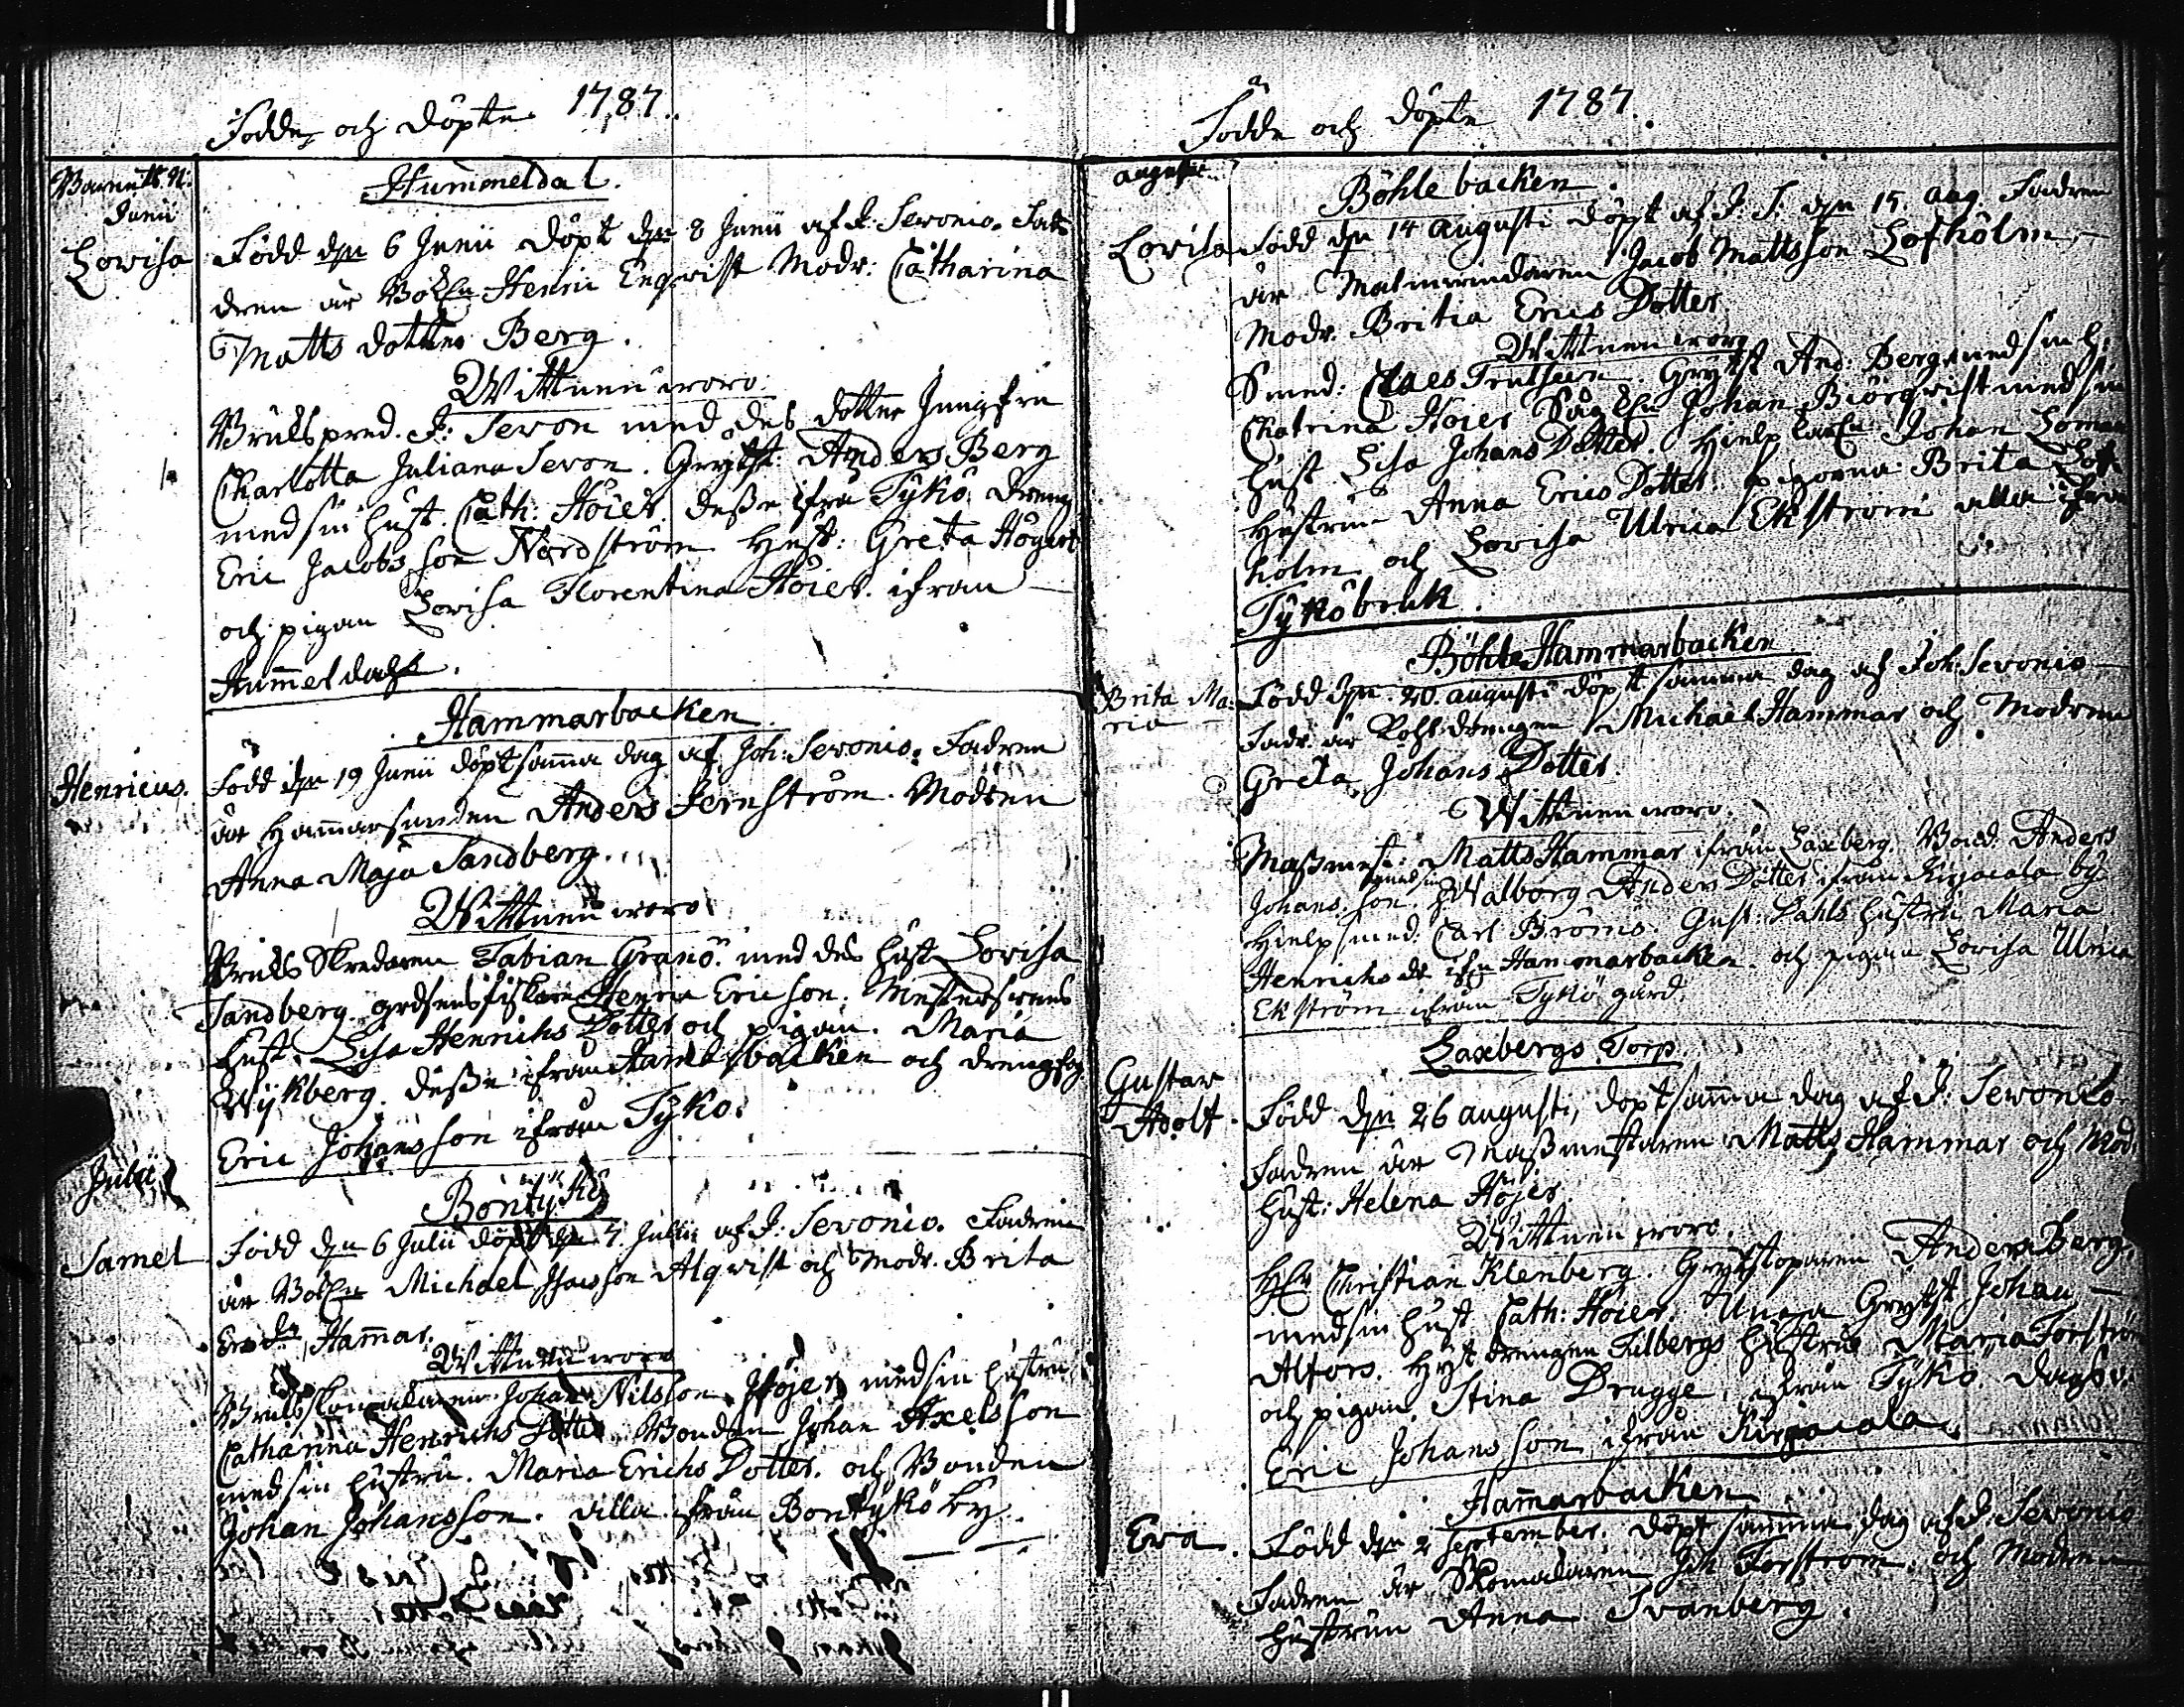 Födde och döpte 1787.
Barnets N:
Junii
Hummeldal.
Lovisa
Född dn 6 Junii döpt dn 8 Junii af J: Sevonio. Fa-
dren är Henric Enqvist Modr: Catharina
Matts dotter Berg.
Wittnen woro.
Bruks pred. J: Sevon med des dotter Jungfru
Charlotta Juliana Sevon. Grytst: Anders Berg
med sin hust. Cath: Höier. desse ifrån Tykö. dreng
Eric Jacobs son Nordström Hust: Greta Högert
och pigan Lovisa Florentina Höier. ifrån
Hummeldahl.
Hammarbacken
Henricus.
Född dn 19 Junii döpt samma dag af Joh: Sevonio. Fadren
är Hammarsmeden Anders Jernström. Modren
Anna Maja Sandberg.
Wittnen woro
Bruks Skredaren Fabian Granö. med des hust Lovisa
Sandberg. Henric Ericson.
hust. Lisa Henrichs Dotter och pigan. Maria
Wykberg. desse ifrån backen och drengfog
Eric Johansson ifrån Tykö.
Julii
Böntykö
Samel
Född dn 6 Julii döpt dn 7. Julii af J: Sevonio. Fadren
är Michael Isacsson Alqvist och Modr. Brita
Hammar.
Wittnen woro
Johan Nilsson Höjer med sin hustru
Catharina Henrichs Dotter. Bonden Johan Axelsson
med sin hustru. Maria Erichs Dotter. och Bonden
Johan Johansson. alla ifrån Bontykö by.
Födde och döpte 1787.
augusti
Böhle backen.
Lovisa
Född dn 14 augusti döpt af J: S: dn 15. aug. Fadren
är Jacob Mattsson Lofholm
Modr. Britia Erics Dotter
Wittnen woro
Smed: Claes Trulsson. Grytst And: Berg med sin h:
Chatrina Höier Johan Biörqvist med sin
hust Lisa Johans Dotter. Hielp Johan Loman
Hustrun Anna Erics Dotter. pigorna Brita Lof
holm och Lovisa Ulrica Ekström alla ifrån
Tykö bruk.
Böhle Hammarbacken
Brita Ma-
ria
Född dn. 20. augusti döpt samma dag af Joh: Sevonio
Fadr. är Kohldrengen Michael Hammar och Modren
Greta Johans Dotter.
Wittnen woro.
Masmest: Matts Hammar ifrån Laxberg. Anders
Johans son. med sin h Walborg Anders Dotter ifrån Kirjacala by
Hielpsmed. Carl Broms. Gust: Dahls hustru Maria
Henrichs dr ifrn Hammarbacken. och pigan Lovisa Ulrica
Ekström ifrån Tykö gård.
Laxbergs Torp
Gustav
Adolf.
Född dn 26 augusti, döpt samma dag af J: Sevonio
Fadren är Masmestaren Matts Hammar och Mod:
hust: Helena Höjer.
Wittnen woro.
Christian Klenberg. Grytstoparen Anders Berg.
med sin hust Cath: Höier. Unga Grytst Johan
Alfors. Hyt drengen Filbergs hustru Maria Forström
och pigan. Stina Drugge. ifrån Tykö.
Eric Johansson, ifrån Kirjacala.
Hammarbacken
Eva.
Född dn 2 September. döpt samma dag af J: Sevonio
Fadren är Skomakaren Joh Forström. och Modren
hustrun Anna Svanberg.